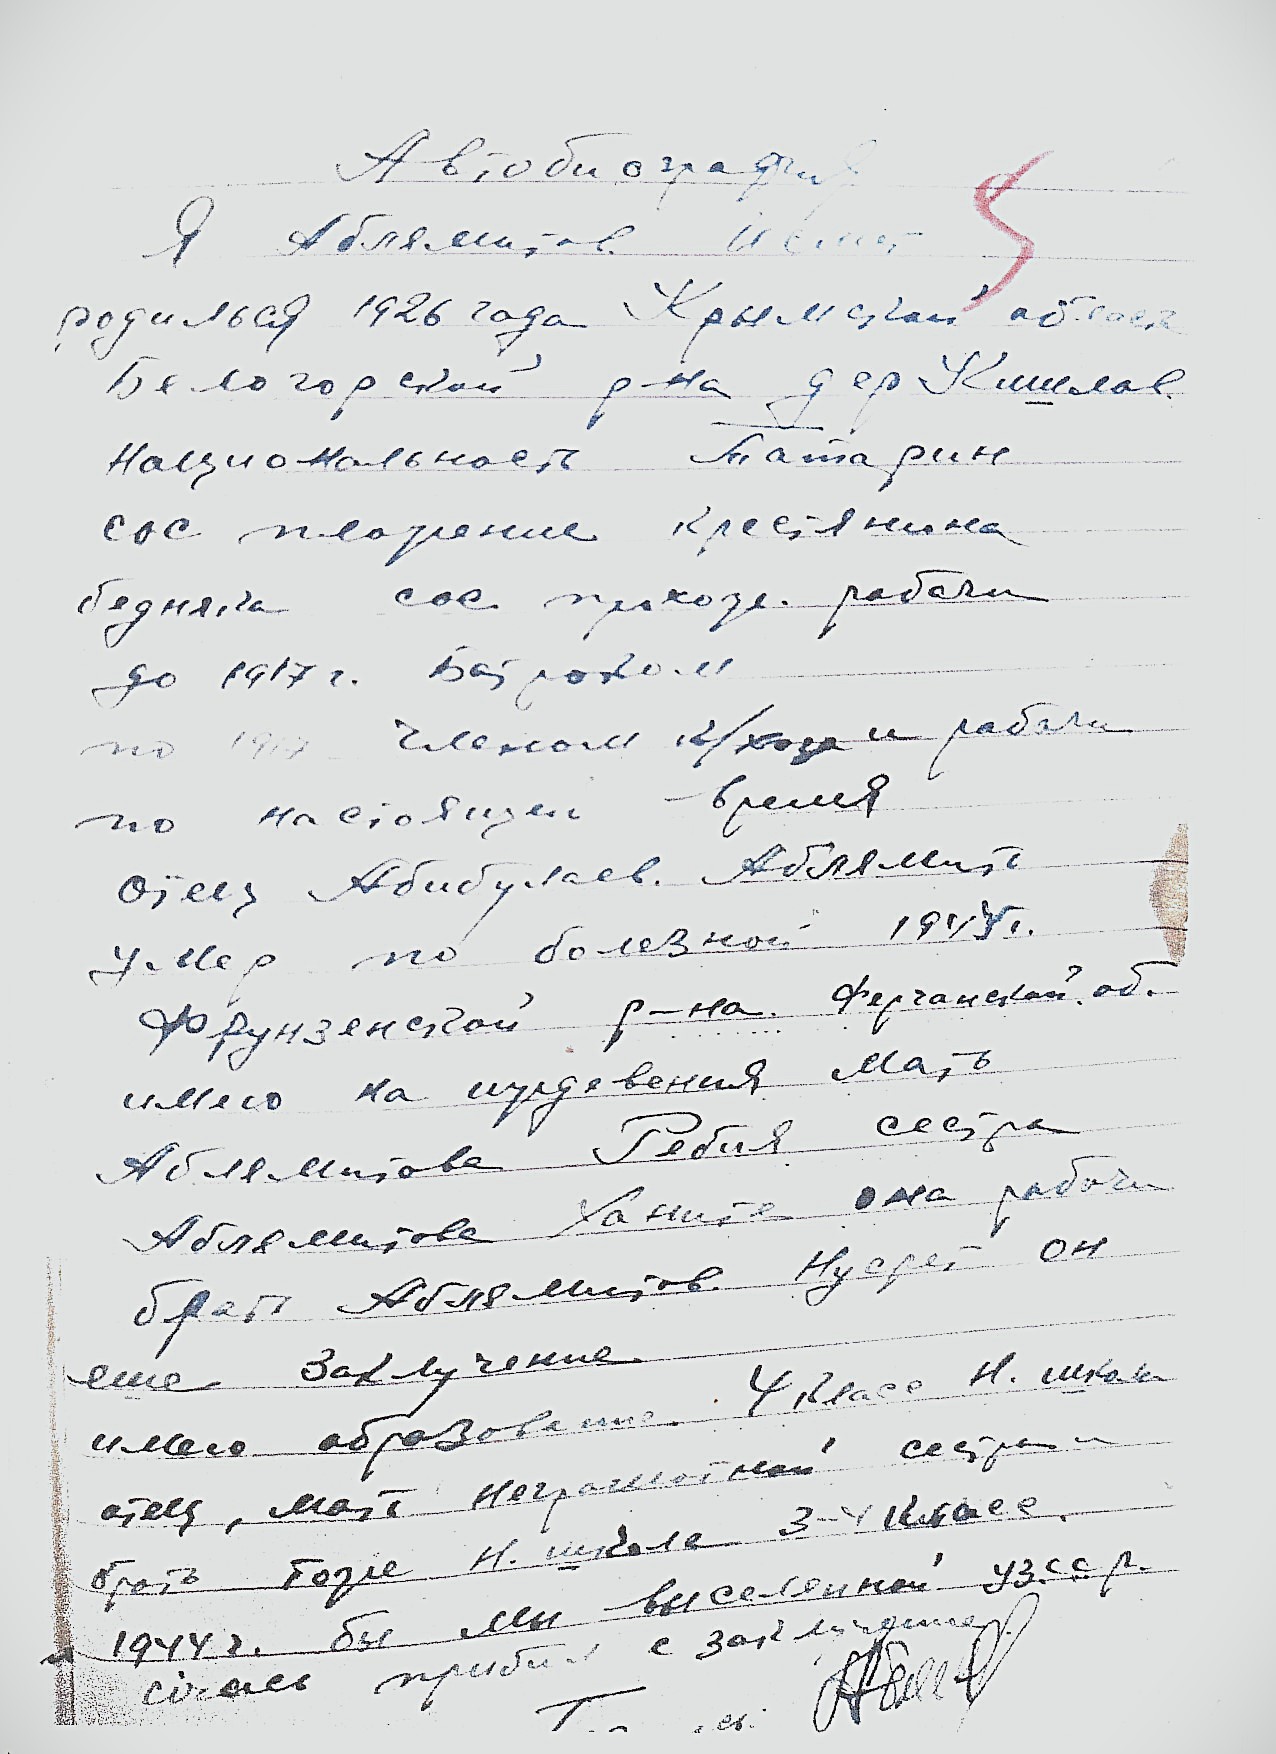 Автобиография
Я Аблямитов Исмет
родилься 1926 года Крымской област
Белогорской р-на дер Кишлав.
Национальность Татарин
сос пложение крестянина
бедняка сос. прохож. рабочи
до 1917 г. Батраком
по 1917 членом к/хоза и рабочи
по настоящей время
отец Абибулаев. Аблямит
умер по болезной 1944 г.
Фрунзенской р-на. Ферганской. об.
имею на иурдевения мать
Аблямитова Ребия сестра
Аблямитова Ханите она рабочи
брат Аблямитов. Нусрет он
еше заключение
имею образование. 4 класс Н. школа
отец, мать неграмотной сестра и
брать тоже Н. школа 3-4 класс.
1944 г. бы мы выселенной уз.с.с.р.
прибил с заключение